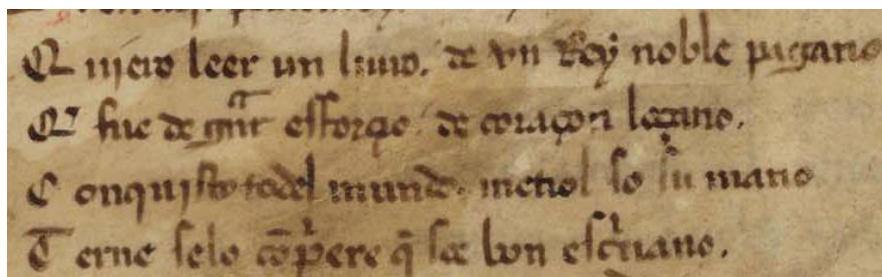 Quiero leer un liuro. de vn Rey noble pagano
Q̃ fue de gr̃t esforçio. de coraçon loçano.
Conquisto todel mundo. metiol so su mano
Terne selo cõp̃ere q̃ soe bon esc̃uano.